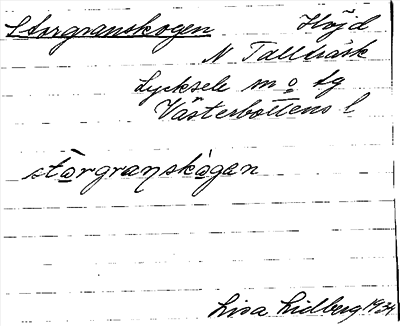 Storgranskogen Höjd
N Tallträsk
Lycksele m o lg
Västerbottens l
stårgranskågen
Lisa Lidberg 1934